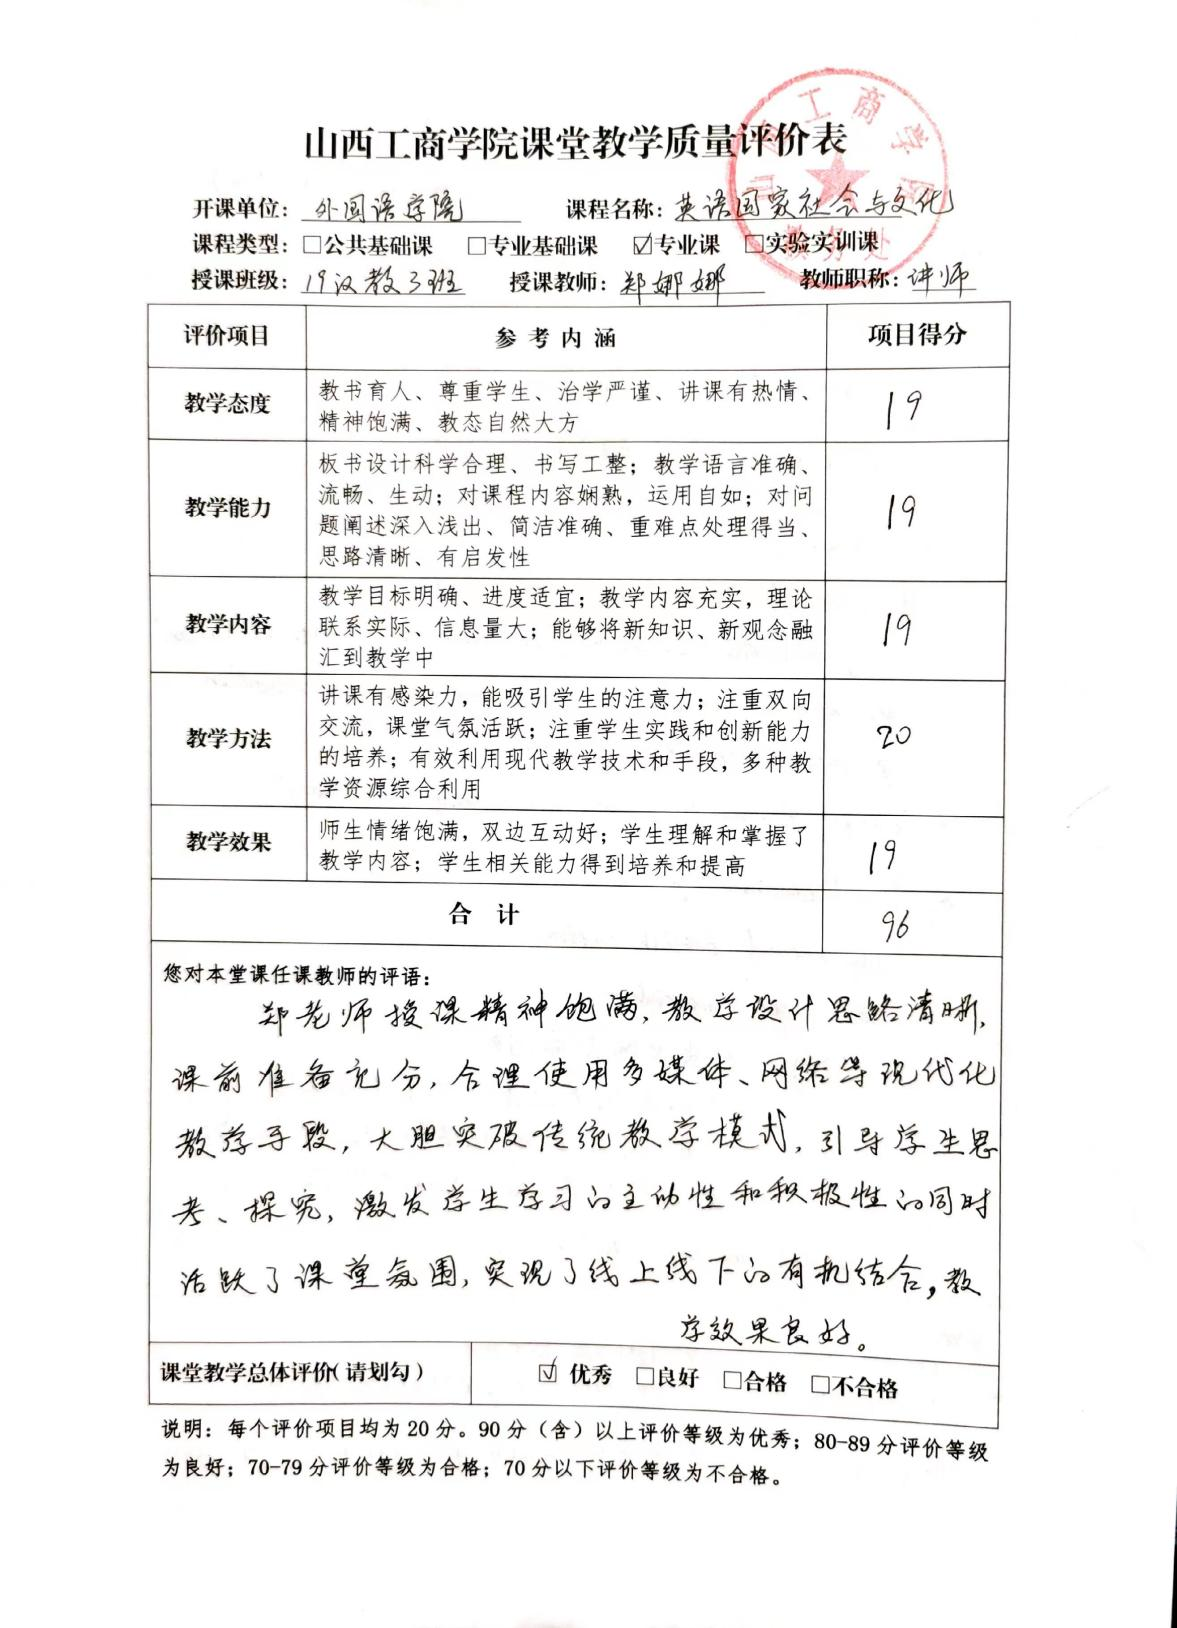 山西工商学院课堂教学质量评价表
山西工商学院
教务处
开课单位：外国语学院 课程名称：英语国家社会与文化
课程类型：□公共基础课 □专业基础课 ☑专业课 □实验实训课
授课班级：19汉教3班 授课教师：郑娜娜 教师职称：讲师
评价项目 参考内涵 项目得分
教学态度 教书育人、尊重学生、治学严谨、讲课有热情、
精神饱满、教态自然大方 19
教学能力 板书设计科学合理、书写工整；教学语言准确、
流畅、生动；对课程内容娴熟，运用自如；对问
题阐述深入浅出、简洁准确、重难点处理得当、
思路清晰、有启发性 19
教学内容 教学目标明确、进度适宜；教学内容充实，理论
联系实际、信息量大；能够将新知识、新观念融
汇到教学中 19
教学方法 讲课有感染力，能吸引学生的注意力；注重双向
交流，课堂气氛活跃；注重学生实践和创新能力
的培养；有效利用现代教学技术和手段，多种教
学资源综合利用 20
教学效果 师生情绪饱满，双边互动好；学生理解和掌握了
教学内容；学生相关能力得到培养和提高 19
合计 96
您对本堂课任课教师的评语：
郑老师授课精神饱满，教学设计思路清晰，
课前准备充分，合理使用多媒体、网络等现代化
教学手段，大胆突破传统教学模式，引导学生思
考、探究，激发学生学习的主动性和积极性的同时
活跃了课堂氛围，实现了线上线下的有机结合，教
学效果良好。
课堂教学总体评价（请划勾） ☑优秀 □良好 □合格 □不合格
说明：每个评价项目均为20分。90分（含）以上评价等级为优秀；80-89分评价等级
为良好；70-79分评价等级为合格；70分以下评价等级为不合格。